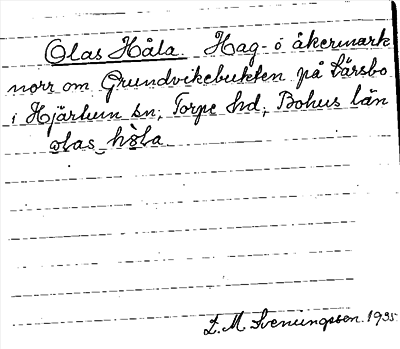 Olas Håla. Hag- o åkermark
norr om Grundvikebukten på Bärsbo
i Hjärtum sn, Torpe hd, Bohus län
olas_hòla
L. M. Svenungsson. 1935